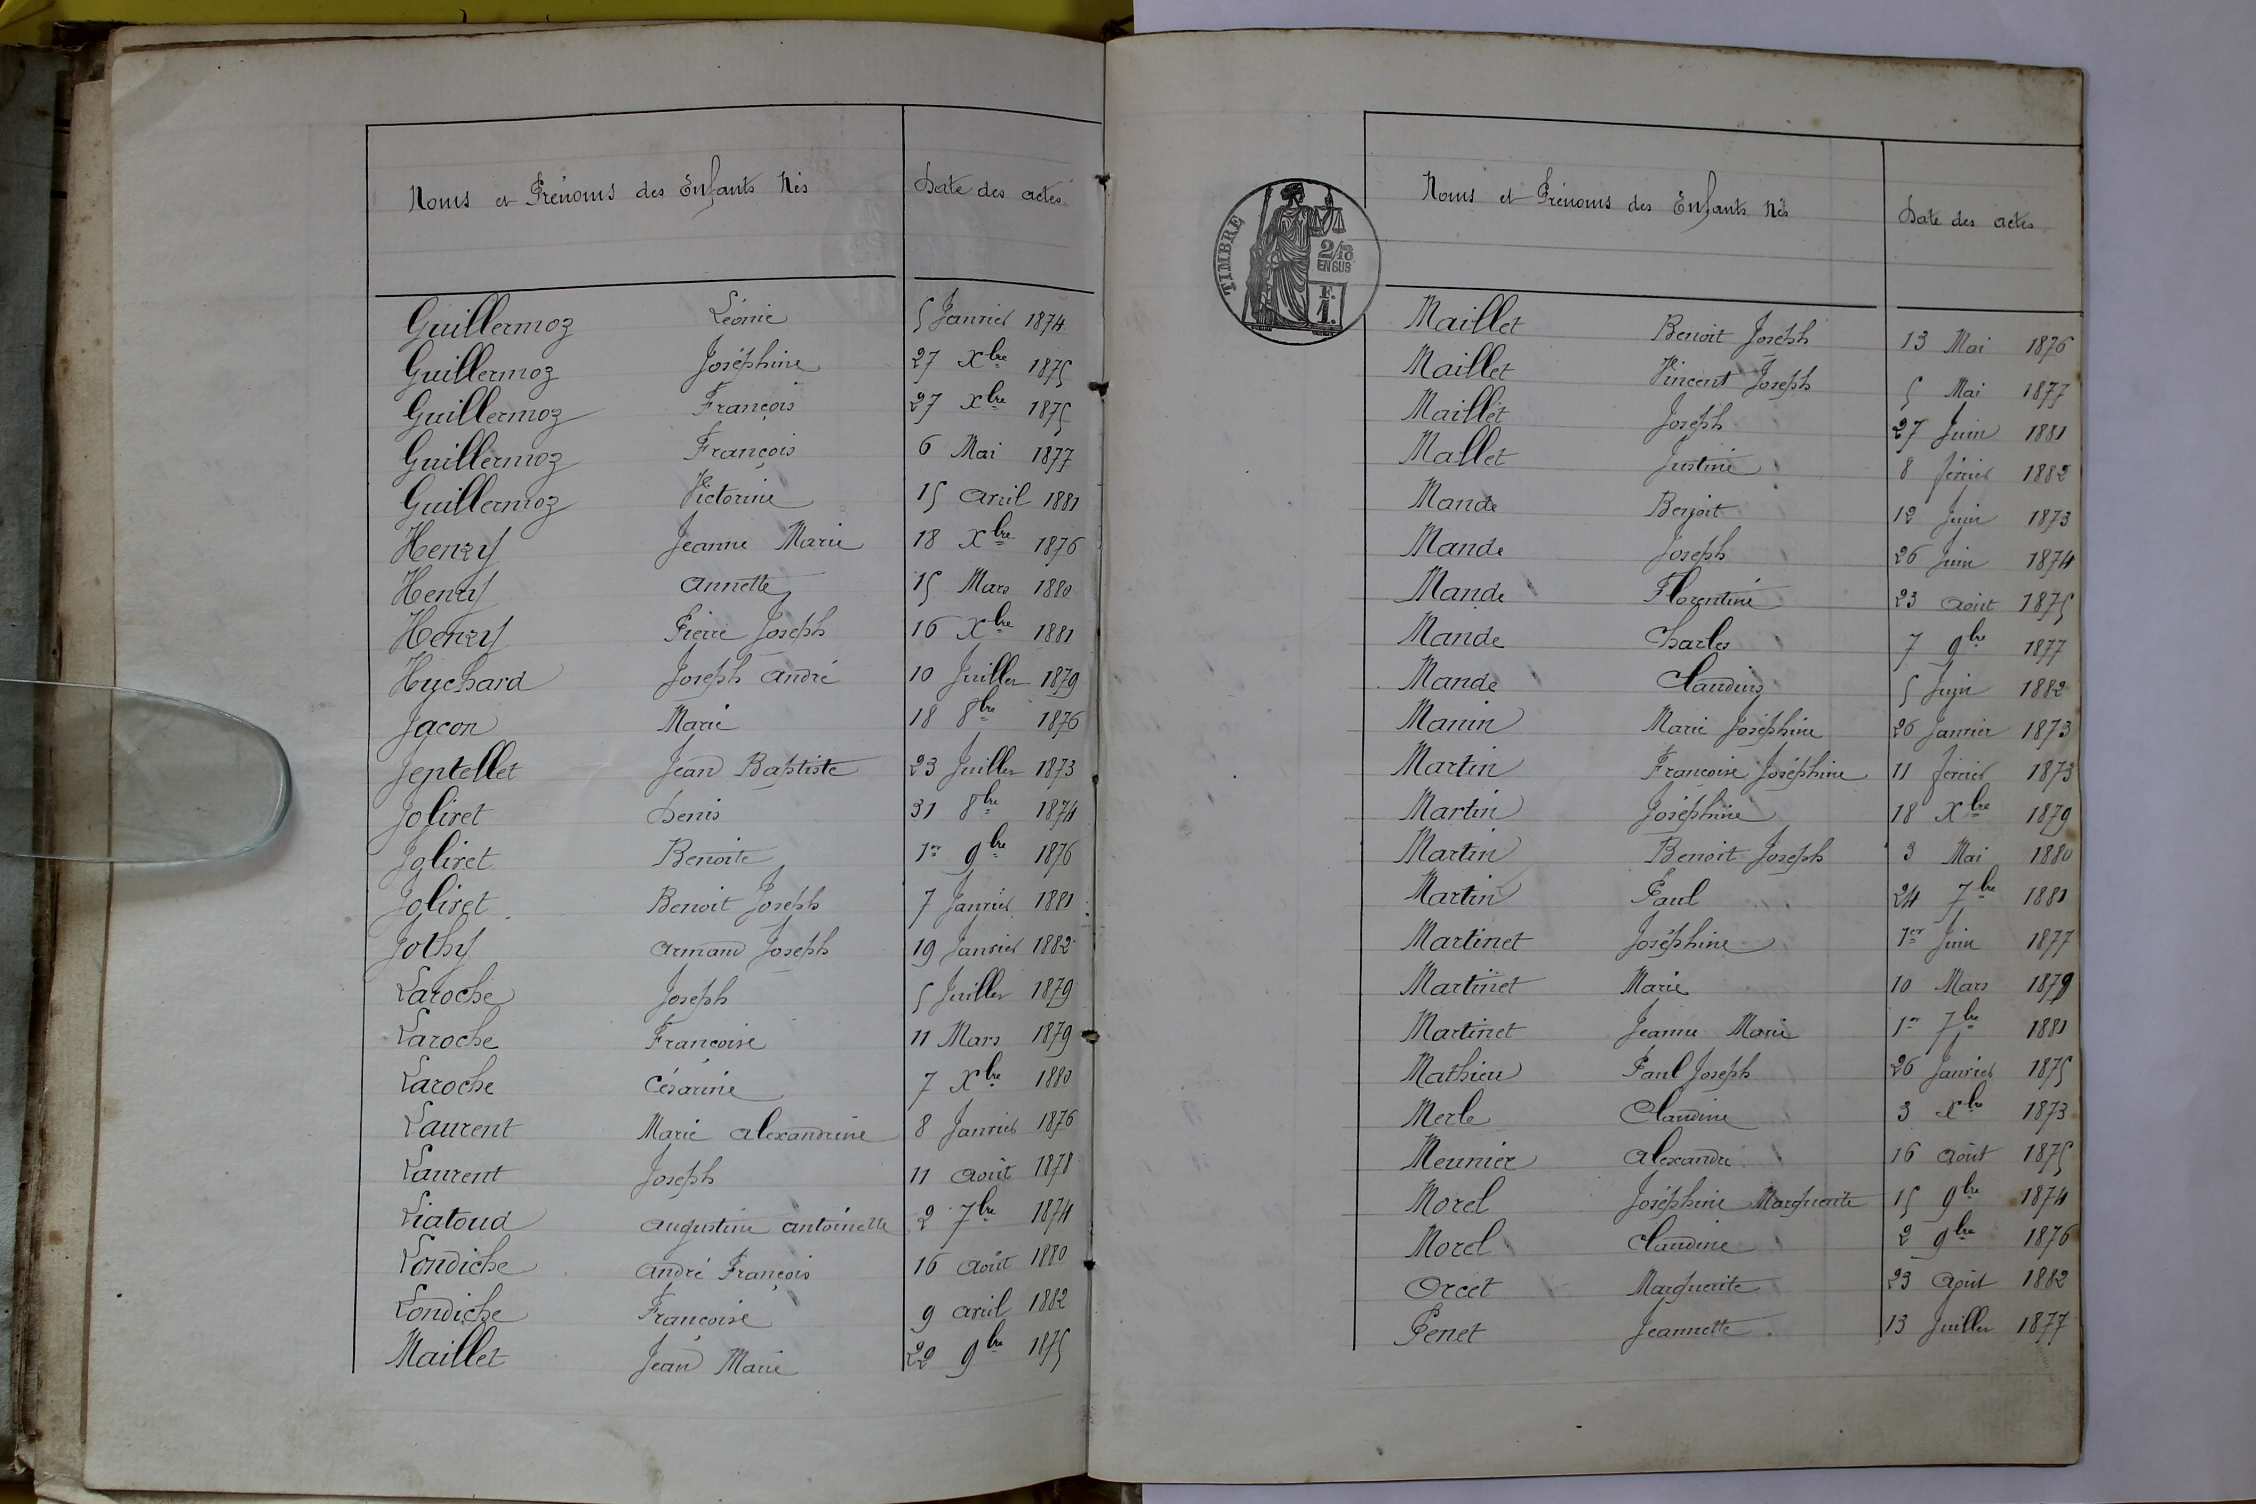 Noms et Prénoms des Enfants Nés Date des actes
Guillermoz Léonie 5 Janvier 1874
Guillermoz Joséphine 27 Xbre 1875
Guillermoz François 27 Xbre 1875
Guillermoz François 6 Mai 1877
Guillermoz Victorine 15 avril 1881
Henry Jeanne Marie 18 Xbre 1876
Henry annette 15 Mars 1880
Henry Pierre Joseph 16 Xbre 1881
Huchard Joseph andré 10 Juillet 1879
Jacon Marie 18 8bre 1876
Jentellet Jean Baptiste 23 Juillet 1873
Joliret Denis 31 8bre 1874
Joliret Benoite 1er 9bre 1876
Joliret Benoit Joseph 7 Janvier 1881
Jothy armand Joseph 19 Janvier 1882
Laroche Joseph 5 Juillet 1879
Laroche Françoise 11 Mars 1879
Laroche Césarine 7 Xbre 1880
Laurent Marie alexandrine 8 Janvier 1876
Laurent Joseph 11 août 1878
Liatoud augustine antoinette 2 7bre 1874
Londiche andré François 16 août 1880
Londiche Françoise 9 avril 1882
Maillet Jean Marie 22 9bre 1875
TIMBRE
2/10
EN SUS
F.
1.
Noms et Prénoms des Enfants Nés Date des actes
Maillet Benoit Joseph 13 Mai 1876
Maillet Vincent Joseph 5 Mai 1877
Maillet Joseph 27 Juin 1881
Mallet Justine 8 février 1882
Mande Benoit 12 Juin 1873
Mande Joseph 26 Juin 1874
Mande Florentine 23 août 1875
Mande Charles 7 9bre 1877
Mande Claudius 5 Juin 1882
Manin Marie Joséphine 26 Janvier 1873
Martin Françoise Joséphine 11 février 1873
Martin Joséphine 18 Xbre 1879
Martin Benoit Joseph 3 Mai 1880
Martin Paul 24 7bre 1881
Martinet Joséphine 1er Juin 1877
Martinet Marie 10 Mars 1879
Martinet Jeanne Marie 1er 7bre 1881
Mathieu Paul Joseph 26 Janvier 1875
Merle Claudine 3 Xbre 1873
Meunier alexandre 16 août 1875
Morel Joséphine Marguerite 15 9bre 1874
Morel Claudine 2 9bre 1876
Orcet Marguerite 23 août 1882
Penet Jeannette 13 Juillet 1877